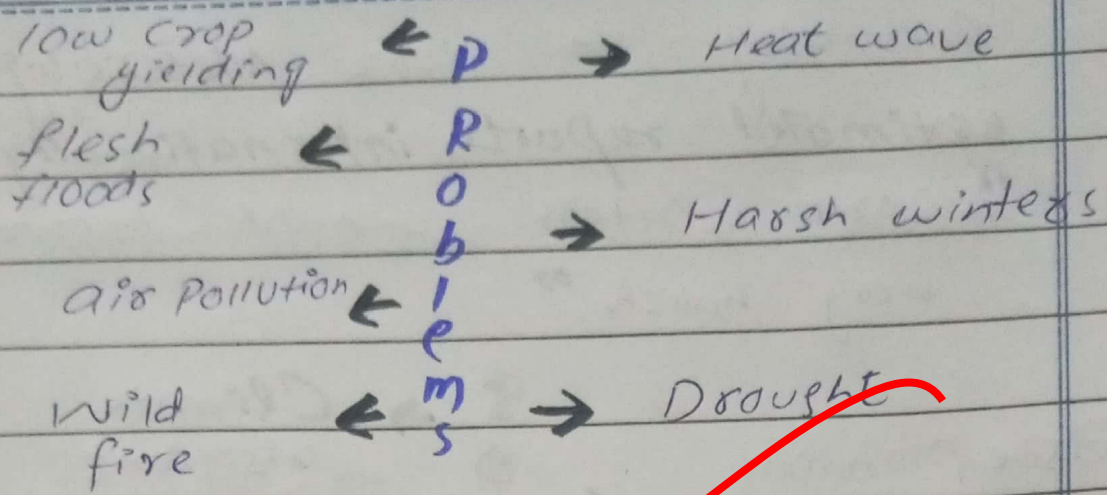 low crop
yielding
← P
→ Heat wave
flesh
floods
← R
O
b
→ Harsh winters
air pollution ← l
e
Wild
fire
← m
→ Drought
s